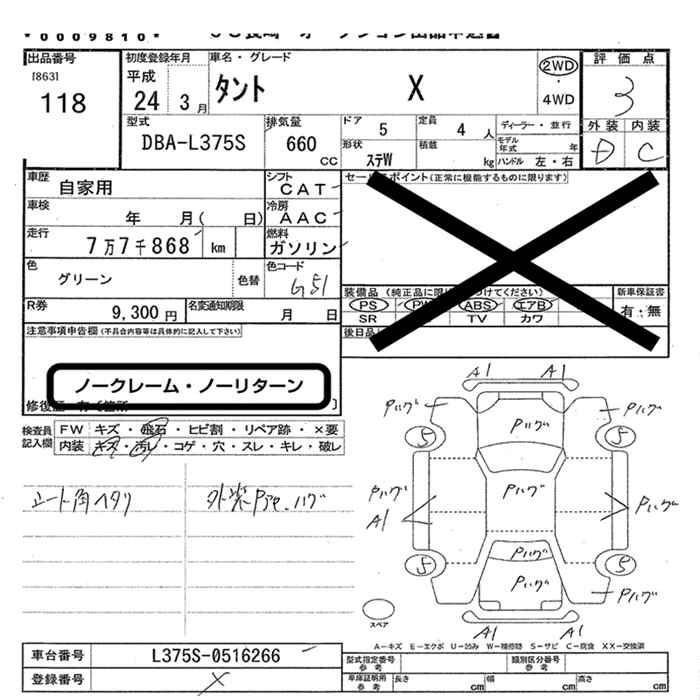 *0009810*
出品番号
[863]
118
初度登録年月
平成
24 3月
車名・グレード
タント X
2WD
・
4WD
評価点
3
型式
DBA-L375S
排気量
660 cc
ドア
5
定員
4 人
ディーラー・並行
モデル年式 年
形状
ステW
積載
kg
ハンドル 左・右
外装 内装
D C
車歴
自家用
シフト
CAT
車検
年 月( 日)
冷房
AAC
走行
7万7千868 km
燃料
ガソリン
色
グリーン
色替
色コード
G51
R券
9,300 円
名変通知期限
月 日
セールスポイント(正常に機能するものに限ります)
PS PW ABS エアB
SR TV カワ
新車保証書
有・無
後日品
注意事項申告欄(不具合内容等は具体的に記入して下さい)
ノークレーム・ノーリターン
検査員記入欄
FW キズ・飛石・ヒビ割・リペア跡・×要
内装 キズ・汚レ・コゲ・穴・スレ・キレ・破レ
シート角ヘタリ
A1 A1
Pハゲ Pハゲ Pハゲ
5 5
Pハゲ Pハゲ Pハゲ
A1
5 Pハゲ 5
Pハゲ Pハゲ Pハゲ
A1 A1
スペア
A-キズ E-エクボ U-凹み W-補修跡 S-サビ C-腐食 XX-交換済
車台番号
L375S-0516266
登録番号
×
型式指定番号
参考
類別区分番号
参考
車庫証明用
参考
長さ cm
幅 cm
高さ cm